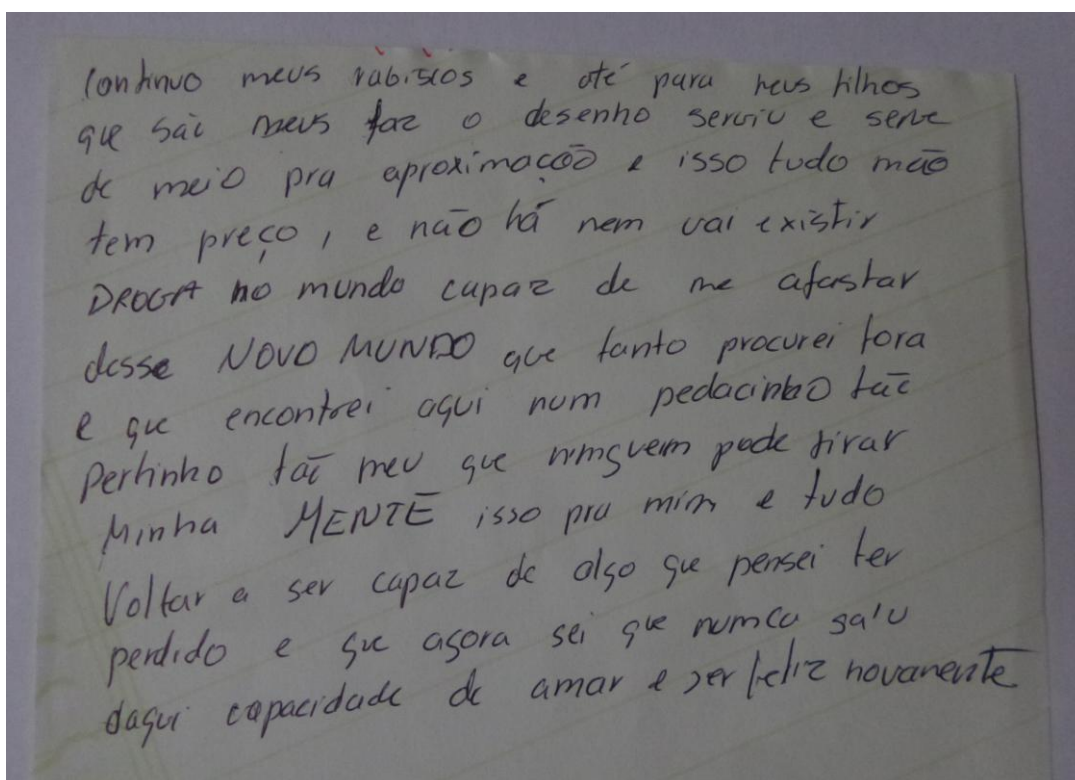 continuo meus rabiscos e até para meus filhos
que são meus faz o desenho serviu e serve
de meio pra aproximação e isso tudo mão
tem preço, e não há nem vai existir
DROGA no mundo capaz de me afastar
desse NOVO MUNDO que tanto procurei fora
e que encontrei aqui num pedacinho tão
pertinho tão meu que ninguem pode tirar
Minha MENTE isso pra mim e tudo
Voltar a ser capaz de algo que pensei ter
perdido e que agora sei que numca saiu
daqui capacidade de amar e ser feliz novamente